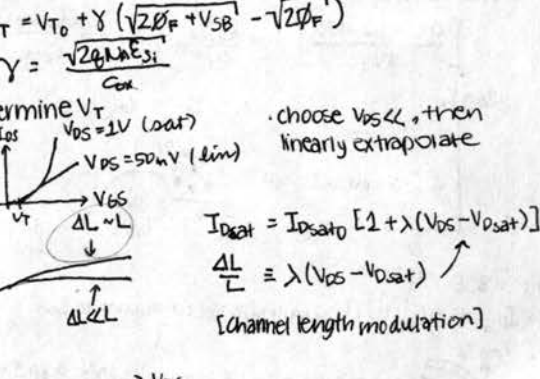 T = V_T0 + γ (√(2Ø_F + V_SB) - √(2Ø_F))
γ = √(2qN_Aε_Si) / C_ox
ermine V_T
I_DS
V_DS = 1V (sat)
V_DS = 50mV (lin)
V_T
V_GS
· choose V_DS <<, then
linearly extrapolate
ΔL ~ L
ΔL << L
I_Dsat = I_Dsat0 [1 + λ(V_DS - V_Dsat)]
ΔL/L ≡ λ(V_DS - V_Dsat)
[Channel length modulation]